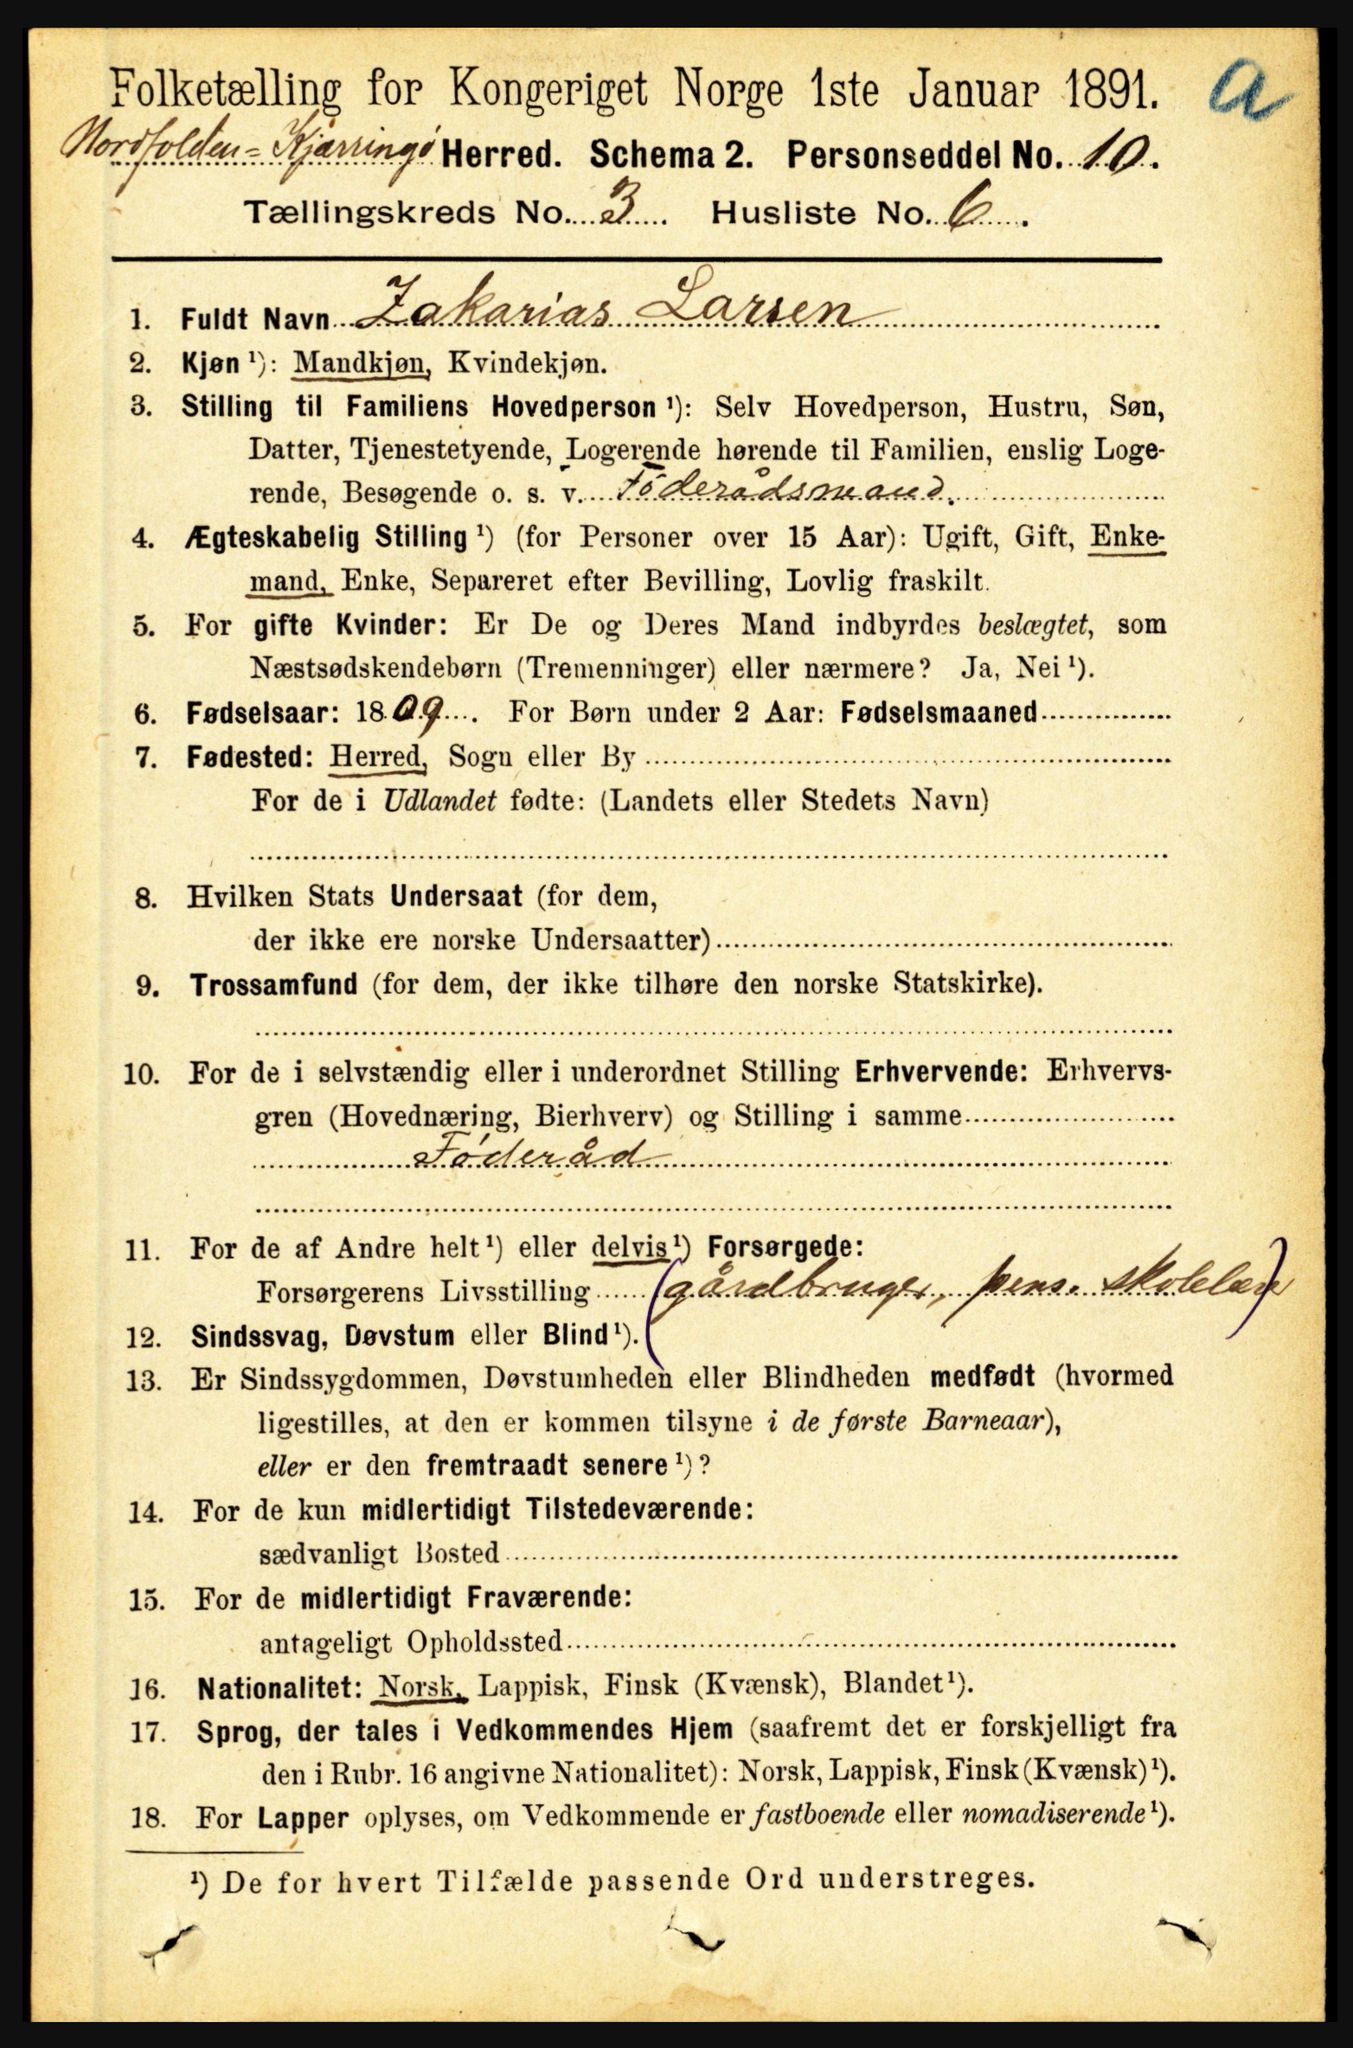 Folketælling for Kongeriget Norge 1ste Januar 1891.
a
Nordfolden-Kjærringø Herred. Schema 2. Personseddel No. 10.
Tællingskreds No. 3. Husliste No. 6.
1. Fuldt Navn Zakarias Larsen
2. Kjøn ¹): Mandkjøn, Kvindekjøn.
3. Stilling til Familiens Hovedperson ¹): Selv Hovedperson, Hustru, Søn,
Datter, Tjenestetyende, Logerende hørende til Familien, enslig Loge-
rende, Besøgende o. s. v. Föderådsmand.
4. Ægteskabelig Stilling ¹) (for Personer over 15 Aar): Ugift, Gift, Enke-
mand, Enke, Separeret efter Bevilling, Lovlig fraskilt.
5. For gifte Kvinder: Er De og Deres Mand indbyrdes beslægtet, som
Næstsødskendebørn (Tremenninger) eller nærmere? Ja, Nei ¹).
6. Fødselsaar: 1809. For Børn under 2 Aar: Fødselsmaaned
7. Fødested: Herred, Sogn eller By
For de i Udlandet fødte: (Landets eller Stedets Navn)
8. Hvilken Stats Undersaat (for dem,
der ikke ere norske Undersaatter)
9. Trossamfund (for dem, der ikke tilhøre den norske Statskirke).
10. For de i selvstændig eller i underordnet Stilling Erhvervende: Erhvervs-
gren (Hovednæring, Bierhverv) og Stilling i samme
Föderåd
11. For de af Andre helt ¹) eller delvis ¹) Forsørgede:
Forsørgerens Livsstilling (gårdbruger, pens. skolelær)
12. Sindssvag, Døvstum eller Blind ¹).
13. Er Sindssygdommen, Døvstumheden eller Blindheden medfødt (hvormed
ligestilles, at den er kommen tilsyne i de første Barneaar),
eller er den fremtraadt senere ¹)?
14. For de kun midlertidigt Tilstedeværende:
sædvanligt Bosted
15. For de midlertidigt Fraværende:
antageligt Opholdssted
16. Nationalitet: Norsk, Lappisk, Finsk (Kvænsk), Blandet ¹).
17. Sprog, der tales i Vedkommendes Hjem (saafremt det er forskjelligt fra
den i Rubr. 16 angivne Nationalitet): Norsk, Lappisk, Finsk (Kvænsk) ¹).
18. For Lapper oplyses, om Vedkommende er fastboende eller nomadiserende ¹).
¹) De for hvert Tilfælde passende Ord understreges.